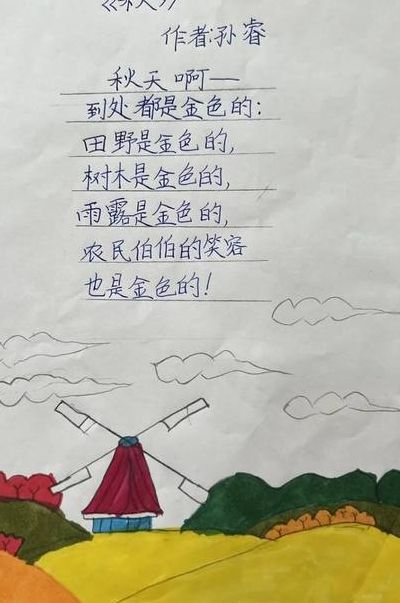 《秋天》
作者:孙睿
秋天啊—
到处都是金色的:
田野是金色的,
树木是金色的,
雨露是金色的,
农民伯伯的笑容
也是金色的!